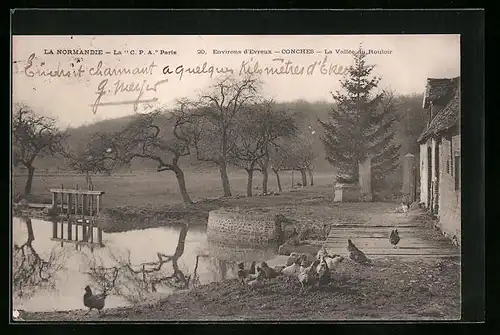 LA NORMANDIE — LA "C. P. A." Paris 20. Environs d'Evreux — CONCHES — La Vallée du Rouloir
Endroit charmant à quelques Kilomètres d'Evreux
G. Meyer